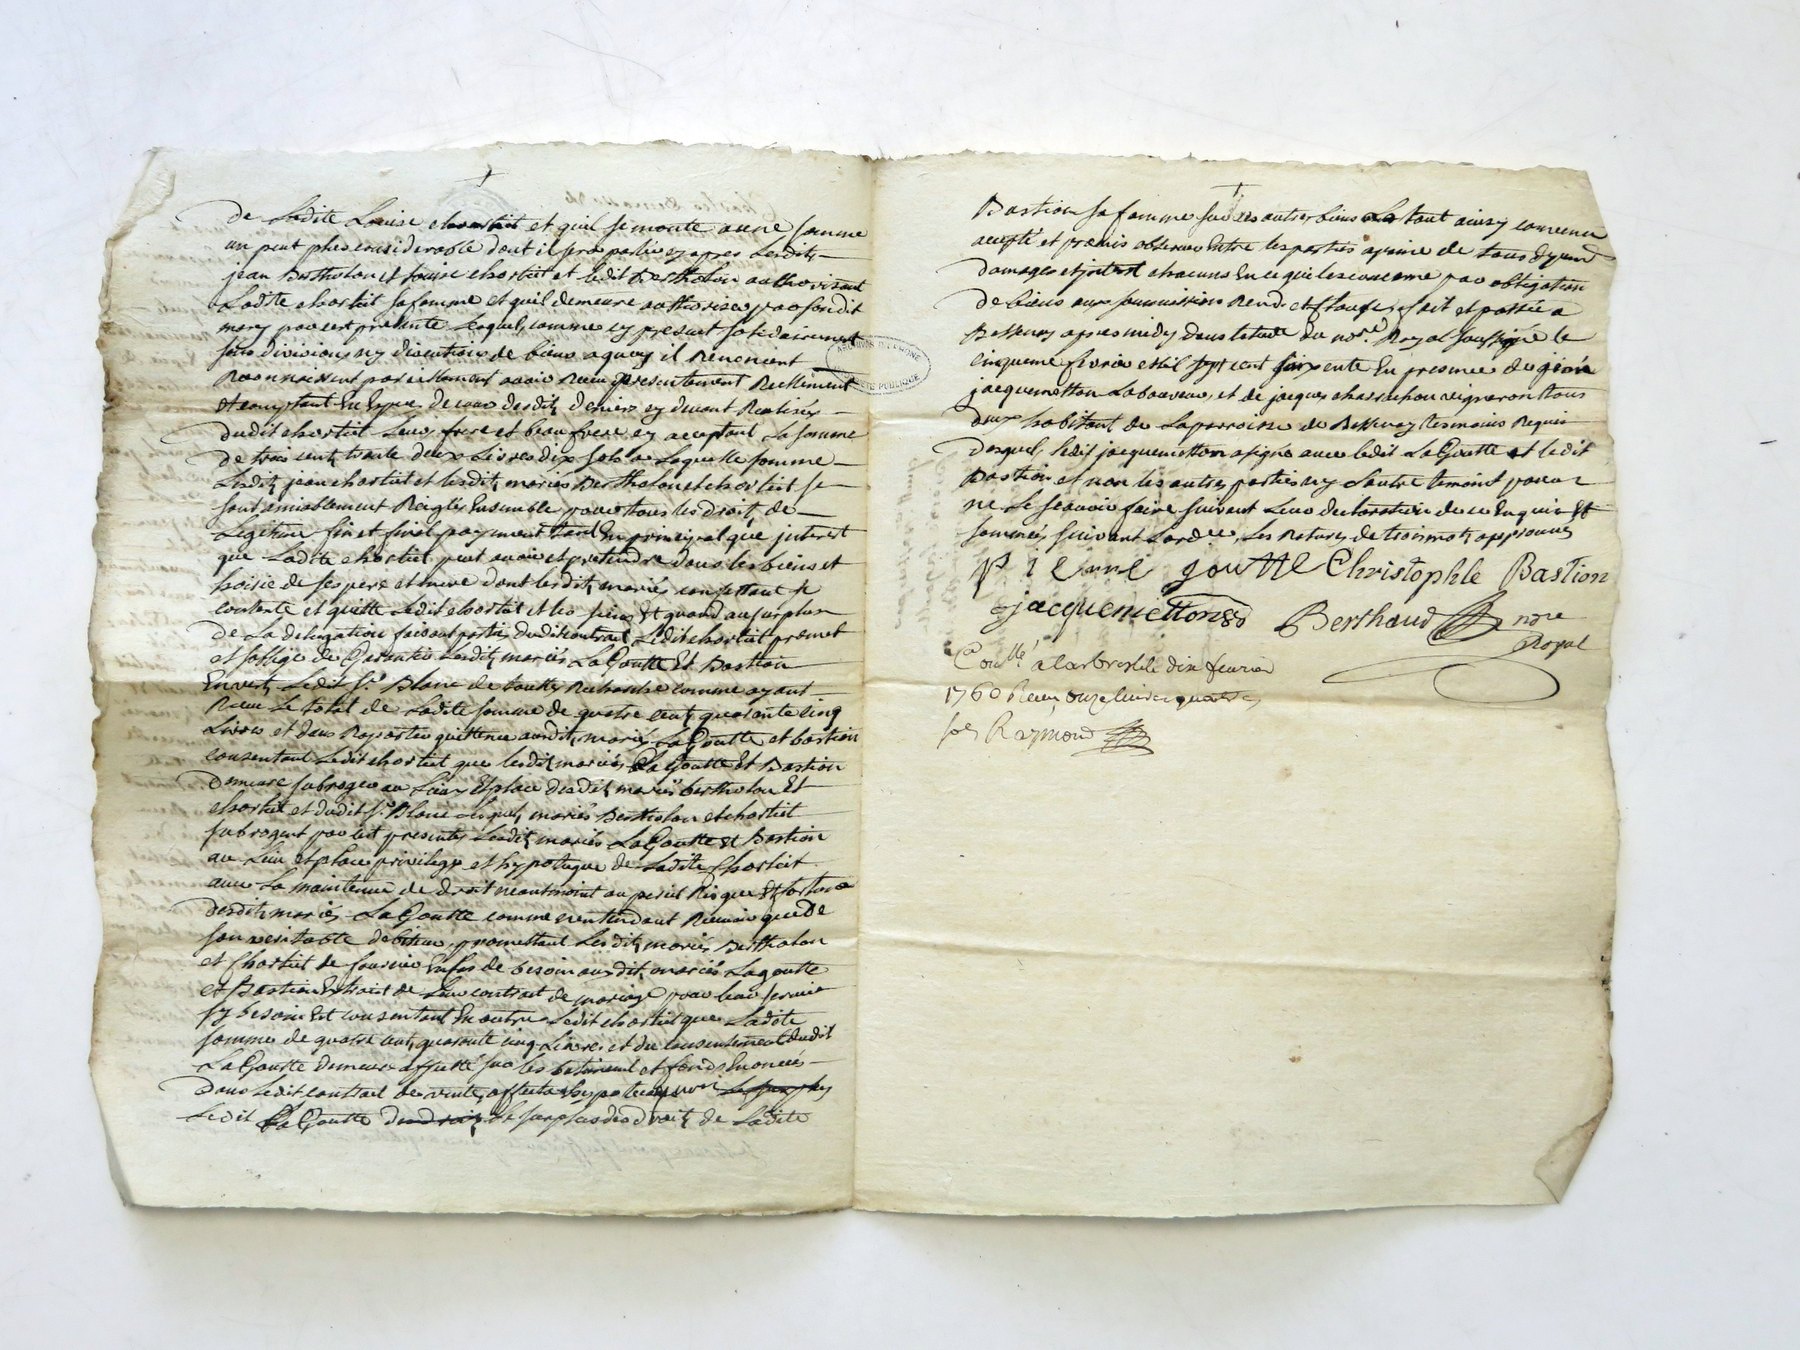 de Ladite Louise chortiet et quil se monte a une somme
un peut plus considerable dont il sera parlé cy apres Lesdits
jean Bertholon et Louise chortiet et ledit Bertholon authorisant
Ladite chortiet sa femme et quil demeure authorisée par sondit
mary par cest presente Lequel comme cy present solidairement
sans divisions ny discutions de biens a quoy il Renoncent
Reconnoissent avoir Receu presentement Reellement
Et comptant En Espece de cour desdits deniers cy devant Realisés
dudit chortiet Leur frere et beau frere cy acceptant La somme
de trois cent trante deux Livres dix sols a Laquelle somme
Lesdits jean chortiet et lesdits mariés Bertholon et chortiet se
sont amiablement Reiglés Ensemble pour tous les droits de
Legitime fin et final payement tant En principal que jnterest
que Ladite chortiet peut avoir et pretendre dans les biens et
hoirie de ses pere et mere dont lesdits mariés se
contente et quitte Ledit chortiet et les siens Et quand au surplus
de La delegation faisant partie dudit contrat Ledit chortiet promet
et soblige de Garentir Lesdits mariés La Goutte Et Bastion
Envers Ledit Sr. Blanc de toutte Recherche comme ayant
Receu Le total de Ladite somme de quatre cent quarante cinq
Livres et dans Raporter quittence auxdits mariés La Goutte et bastion
consentant Ledit chortiet que lesdits mariés La Goutte Et Bastion
demeure subrogés au Lieu Et place desdits mariés bertholon Et
chortiet et dudit Sr. Blanc Lesquels mariés Bertholon et chortiet
subrogent par cest presentes Lesdits mariés La Goutte Et Bastion
au Lieu et place privilege et hypoteque de Ladite Chortiet
avec La maintenue de droit neantmoint au peril Risque Et fortune
desdits mariés La Goutte comme nentendant Recevoir que de
son veritable debiteur, promettant Lesdits mariés Bertholon
et Chortiet de fournir En cas de besoin auxdits mariés Lagoutte
et Bastion Extrait de Leur contract de mariage pour leur servir
sy besoin Est consentant En outre Ledit chortiet que Ladite
somme de quatre cent quarante cinq Livres et du consentement dudit
La Goutte demeure affecté sur les batiment et fonds Enoncés
dans Ledit contract de vente, affecter hypotequer
Ledit La Goutte Le surplus des droits de Ladite
Bastion sa femme sur ses autres biens Le tout ainsy convenu
accepté et promis observer Entre les parties a peine de tous depend
domages et jnterest chacuns En ce qui les concerne par obligation
de biens aux soumissions Rend. et Clauses, fait et passée a
Bessenay apres midy dans letude du nore. Royal soussigné le
cinquieme fevrier mil sept cent soixente En presence de
jacquemetton Laboureur, et de jacques vigneron tous
deux habitant de La parroisse de Bessenay temoins Requis
desquels, ledit jacquemetton a signé avec ledit La Goutte et ledit
Bastion et non les autres parties ny Lautre temoint pour
ne Le scavoir faire suivant Leur declaration de ce Enquis Et
sommés suivant Lordce., Les Ratures de trois mots approuvés
Pierre goutte Christophle Bastion
jacquemetton Berthaud nore
Royal
Conllé a larbresle le dix fevrier
1760 Receu onze livres quatre
sols Raymond
ARCHIVES DU RHONE
PROPRIÉTÉ PUBLIQUE